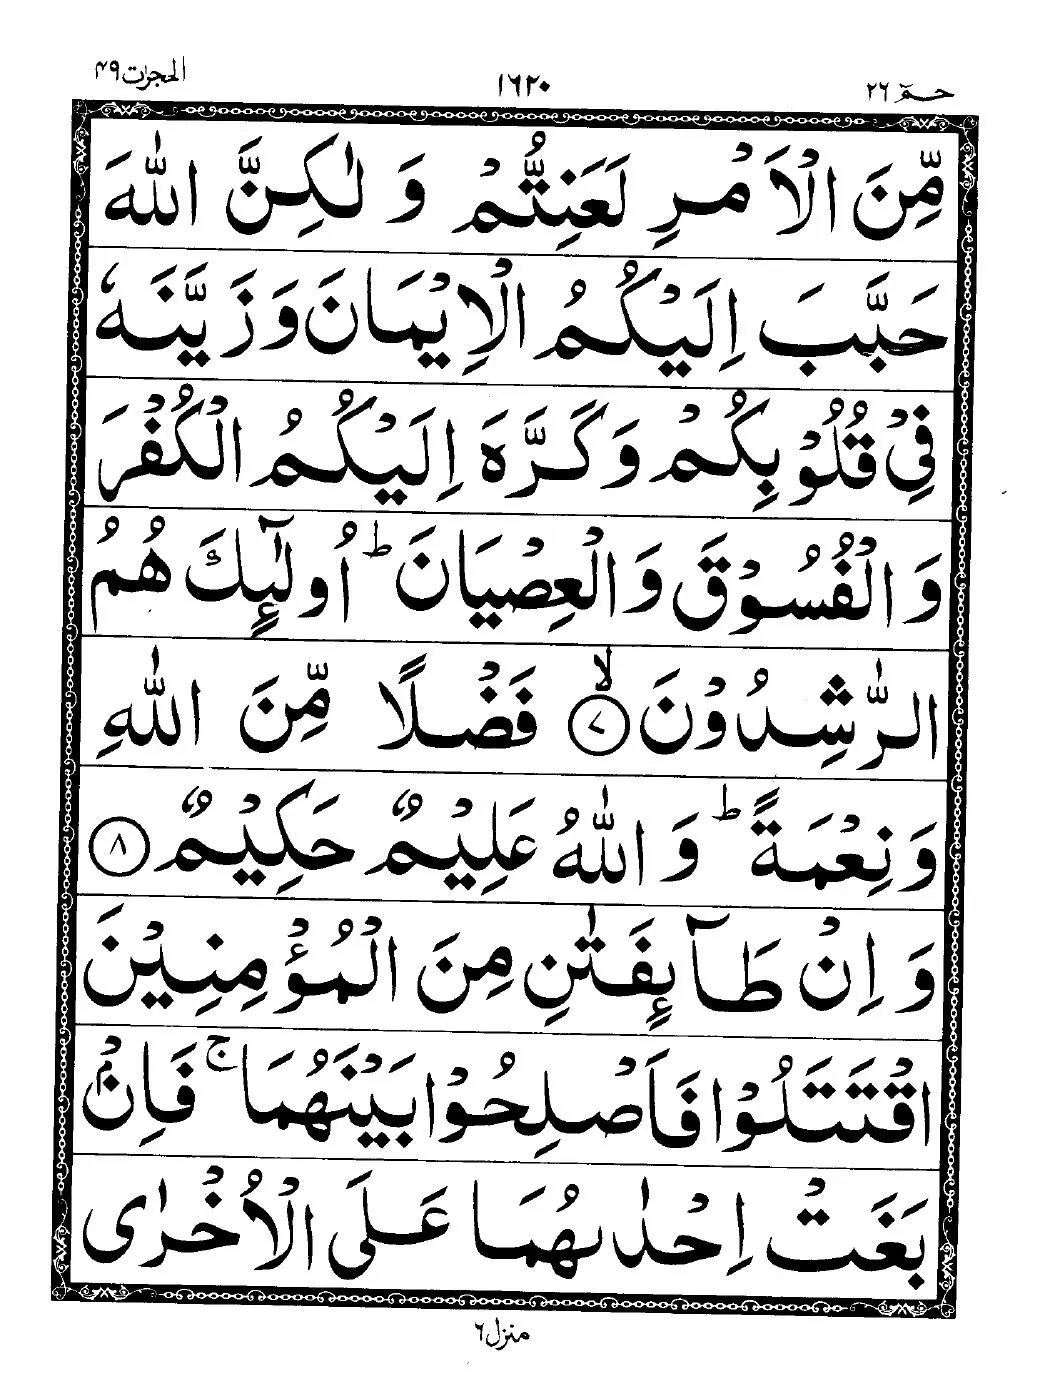 حٰمٓ ٢٦
١٦٢٠
الحجرٰت ٤٩
مِّنَ الْاَمْرِ لَعَنِتُّمْ وَ لٰكِنَّ اللّٰهَ
حَبَّبَ اِلَيْكُمُ الْاِيْمَانَ وَ زَيَّنَهٗ
فِيْ قُلُوْبِكُمْ وَ كَرَّهَ اِلَيْكُمُ الْكُفْرَ
وَ الْفُسُوْقَ وَ الْعِصْيَانَ ؕ اُولٰٓئِكَ هُمُ
الرّٰشِدُوْنَ ۙ ٧ فَضْلًا مِّنَ اللّٰهِ
وَ نِعْمَةً ؕ وَ اللّٰهُ عَلِيْمٌ حَكِيْمٌ ٨
وَ اِنْ طَآئِفَتٰنِ مِنَ الْمُؤْمِنِيْنَ
اقْتَتَلُوْا فَاَصْلِحُوْا بَيْنَهُمَا ۚ فَاِنْۢ
بَغَتْ اِحْدٰىهُمَا عَلَى الْاُخْرٰى
منزل ٦